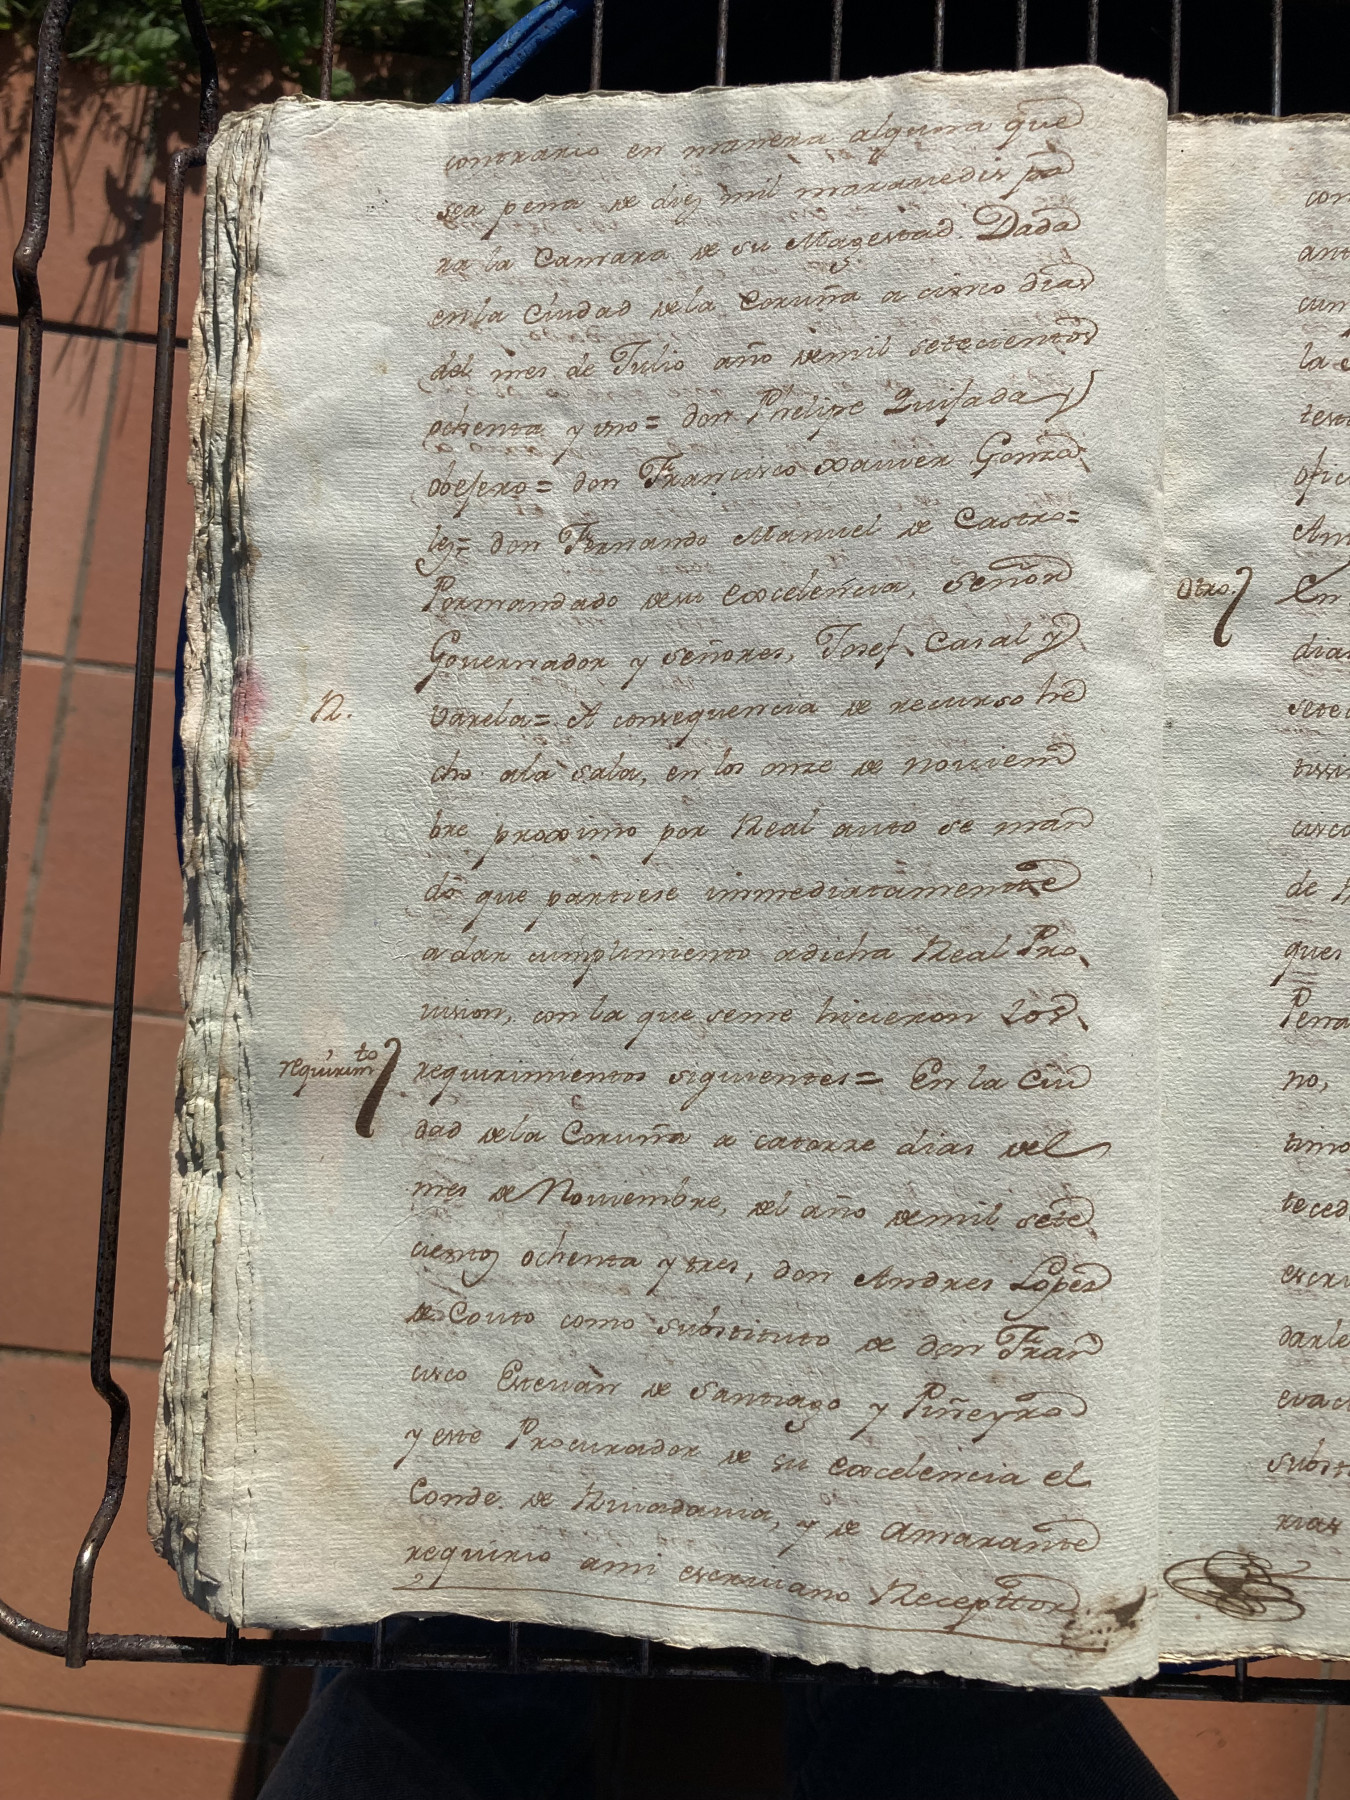 contrario en manera alguna que
sea pena de diez mil maravedis pa
ra la Camara de su Magestad. Dada
en la Ciudad dela Coruña a cinco dias
del mes de Julio año demil setecientos
ochenta y uno= don Phelipe Quijada y
obejero= don Francisco Xavier Gonza
lez= don Fernando Manuel de Castro=
Pormandado desu Excelencia, Señor
Governador y Señores, Josef Casal y
N.
Varela= A consequencia de recurso he
cho ala Sala, en los onze de noviem
bre proximo por Real auto se man
dó que partiese immediatamente
a dar cumplimiento adicha Real Pro
vision, con la que seme hicieron los
requirim.to
requirimientos siguientes= En la Ciu
dad dela Coruña a catorze dias del
mes de Noviembre, del año demil sete
cientos ochenta y tres, don Andres Lopez
de Couto como substituto de don Fran
cisco Estevàn de Santiago y Piñeyro
y este Procurador de su excelencia el
Conde de Rivadavia, y de Amarante
requirio ami escrivano Recepttor
con
la
Otro.
En
dias
sete
de
Pena
no,
timo
teced
escri
darle
evac
substi
rias